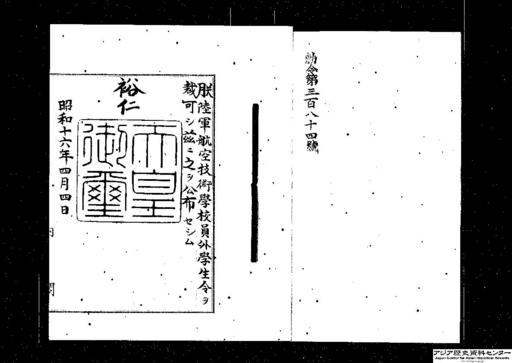 勅令第三百八十四號
朕陸軍航空技術學校員外學生令ヲ
裁可シ茲ニ之ヲ公布セシム
裕仁
天皇
御璽
昭和十六年四月四日
内閣
アジア歴史資料センター
Japan Center for Asian Historical Records